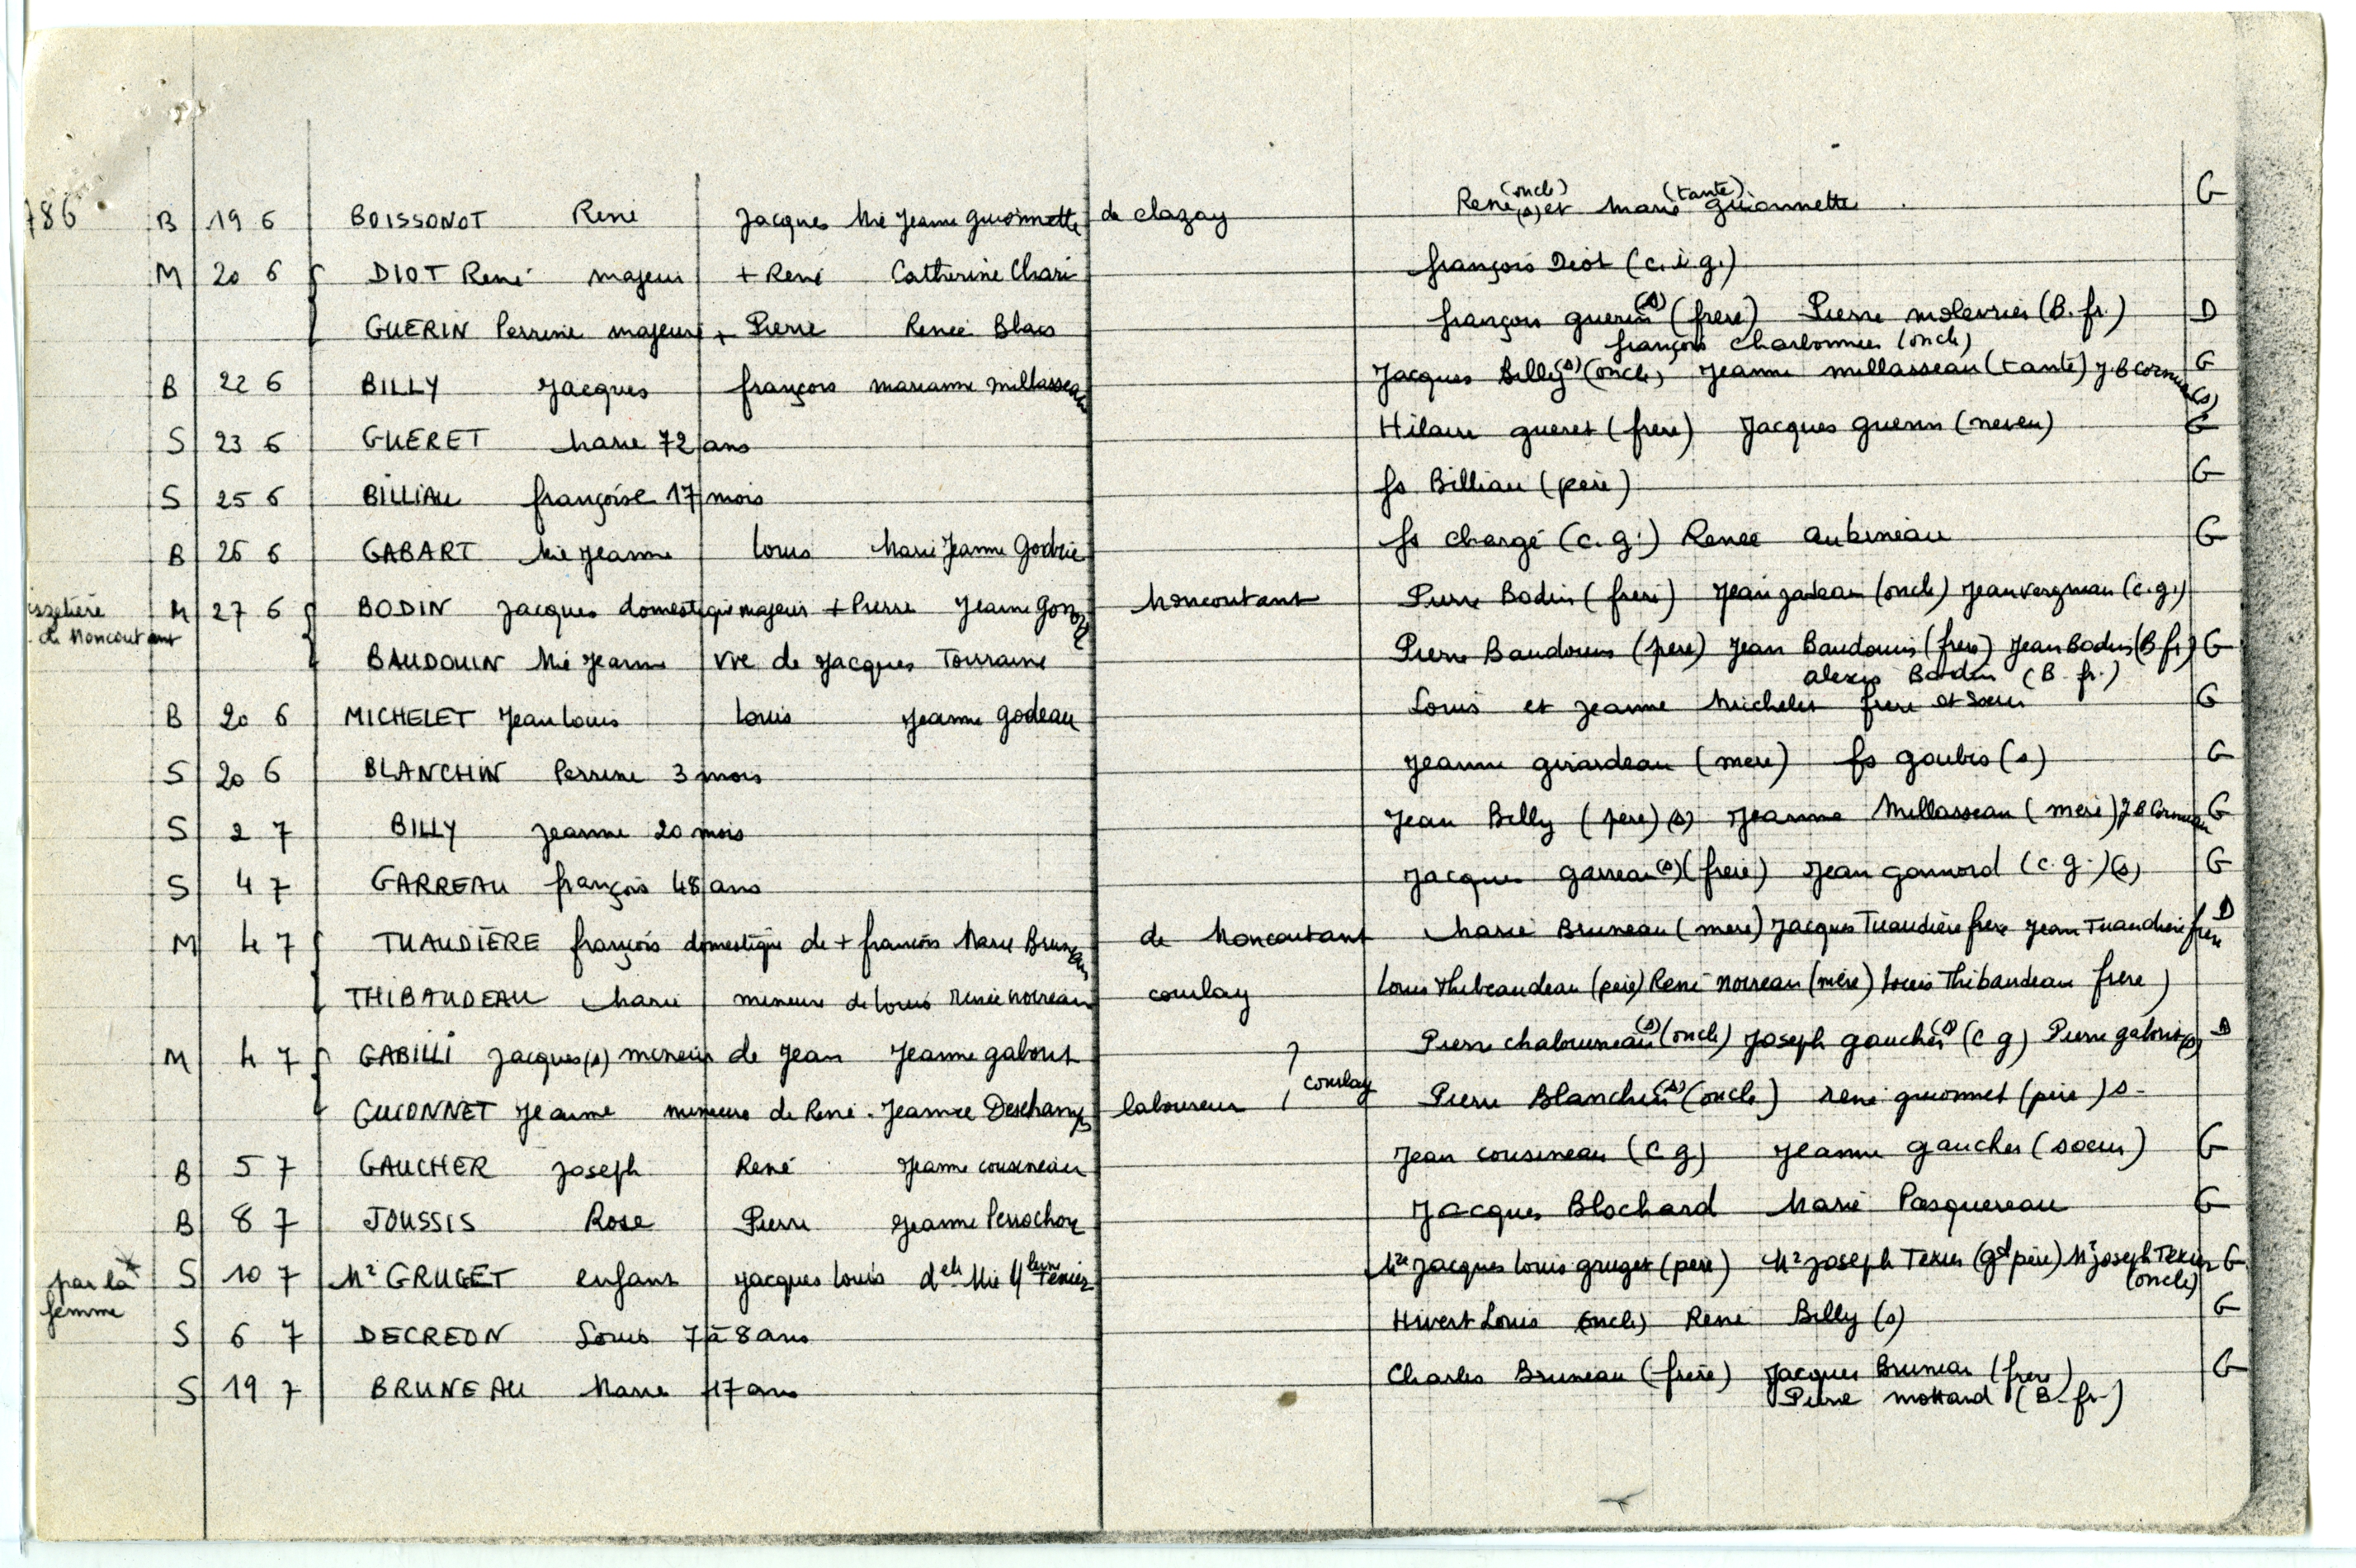 786 B 19 6 BOISSONOT René Jacques Mie Jeanne guionnette de clazay René (oncle) (s) et Marie (tante) guionnette G
M 20 6 DIOT René majeur + René Catherine Chari françois Diot (c. i g.)
GUERIN Perrine majeure + Pierre Renée Blais françois guerin (s) (frere) Pierre molevrier (B. fr.) D
françois charbonneau (oncle)
B 22 6 BILLY Jacques françois marianne millasseau Jacques Billy (s) (oncle) Jeanne millasseau (tante) J.B Cornuau (s) G
S 23 6 GUERET Marie 72 ans Hilaire gueret (frere) Jacques guerin (neveu) G
S 25 6 BILLIAU françoise 17 mois fs Billiau (père) G
B 26 6 GABART Mie Jeanne Louis Marie Jeanne Godrie fs chargé (c. g.) Renée Aubineau G
M 27 6 BODIN Jacques domestique majeur + Pierre Jeanne Moncoutant Pierre Bodin (frere) Jean (oncle) Jean (c.g.)
de Moncoutant
BAUDOUIN Mie Jeanne Vve de Jacques Touraine Pierre Baudouin (pere) Jean Baudouin (frere) Jean Bodin (B. fr) G
alexis Bodin (B. fr.)
B 20 6 MICHELET Jean Louis Louis Jeanne godeau Louis et Jeanne Michelet frere et soeur G
S 20 6 BLANCHIN Perrine 3 mois Jeanne girardeau (mere) fs goubis (s) G
S 2 7 BILLY Jeanne 20 mois Jean Billy (père) (s) Jeanne Millasseau (mere) J B Cornuau G
S 4 7 GARREAU françois 48 ans Jacques garreau (s) (frere) Jean gonnord (c. g.) (s) G
M 4 7 TUAUDIÈRE françois domestique de + françois Marie Bruneau de Moncoutant Marie Bruneau (mere) Jacques Tuaudière frere Jean Tuaudière frere D
THIBAUDEAU Marie mineure de Louis Renée noireau courlay Louis Thibaudeau (père) René noireau (mère) Louis Thibaudeau frere)
M 4 7 GABILLI Jacques (s) mineur de Jean Jeanne gabout Pierre chalouneau (s) (oncle) Joseph gaucher (s) (c g) Pierre (s) D
courlay
GUIONNET Jeanne mineure de René. Jeanne Deschamps laboureur Pierre Blanchin (s) (oncle) René guionnet (père) s-
B 5 7 GAUCHER Joseph René Jeanne cousineau Jean cousineau (c g) Jeanne gaucher (soeur) G
B 8 7 JOUSSIS Rose Pierre Jeanne Perrochon Jacques Blochard Marie Pasquereau G
par la * S 10 7 Mr GRUGET enfant Jacques Louis delle Mie Texier Mre Jacques Louis gruget (père) Mr Joseph Texier (gd père) Mr Joseph Texier G
femme (oncle)
S 6 7 DECREON Louis 7 à 8 ans Hivert Louis (oncle) René Billy (s) G
S 19 7 BRUNEAU Marie 17 ans Charles Bruneau (frère) Jacques Bruneau (frere) G
Pierre mottard (B. fr.)